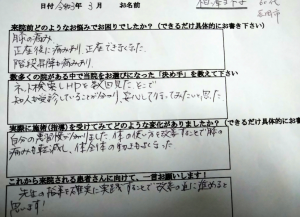 記入日 令和3年 3月 お名前
来院前どのようなお悩みでお困りでしたか?(できるだけ具体的にお書き下さい)
膝の痛み
正座後に痛みあり、正座できなくなった
階段昇降も痛みあり
数多くの院がある中で当院をお選びになった「決め手」を教えて下さい
ネット検索しHPを数回見たことで
知人が受診していることが分かり、安心して行ってみたいと思った
実際に施術(指導)を受けてみてどのような変化がありましたか?(できるだけ具体的にお書き
自分の悪い所が分かりました 体の使い方を改善することで膝の
痛みも軽減し、体全体の
これから来院される患者さんに向けて、一言お願いします!
先生の指導を確実に実践することで改善の道に進めると
思います!